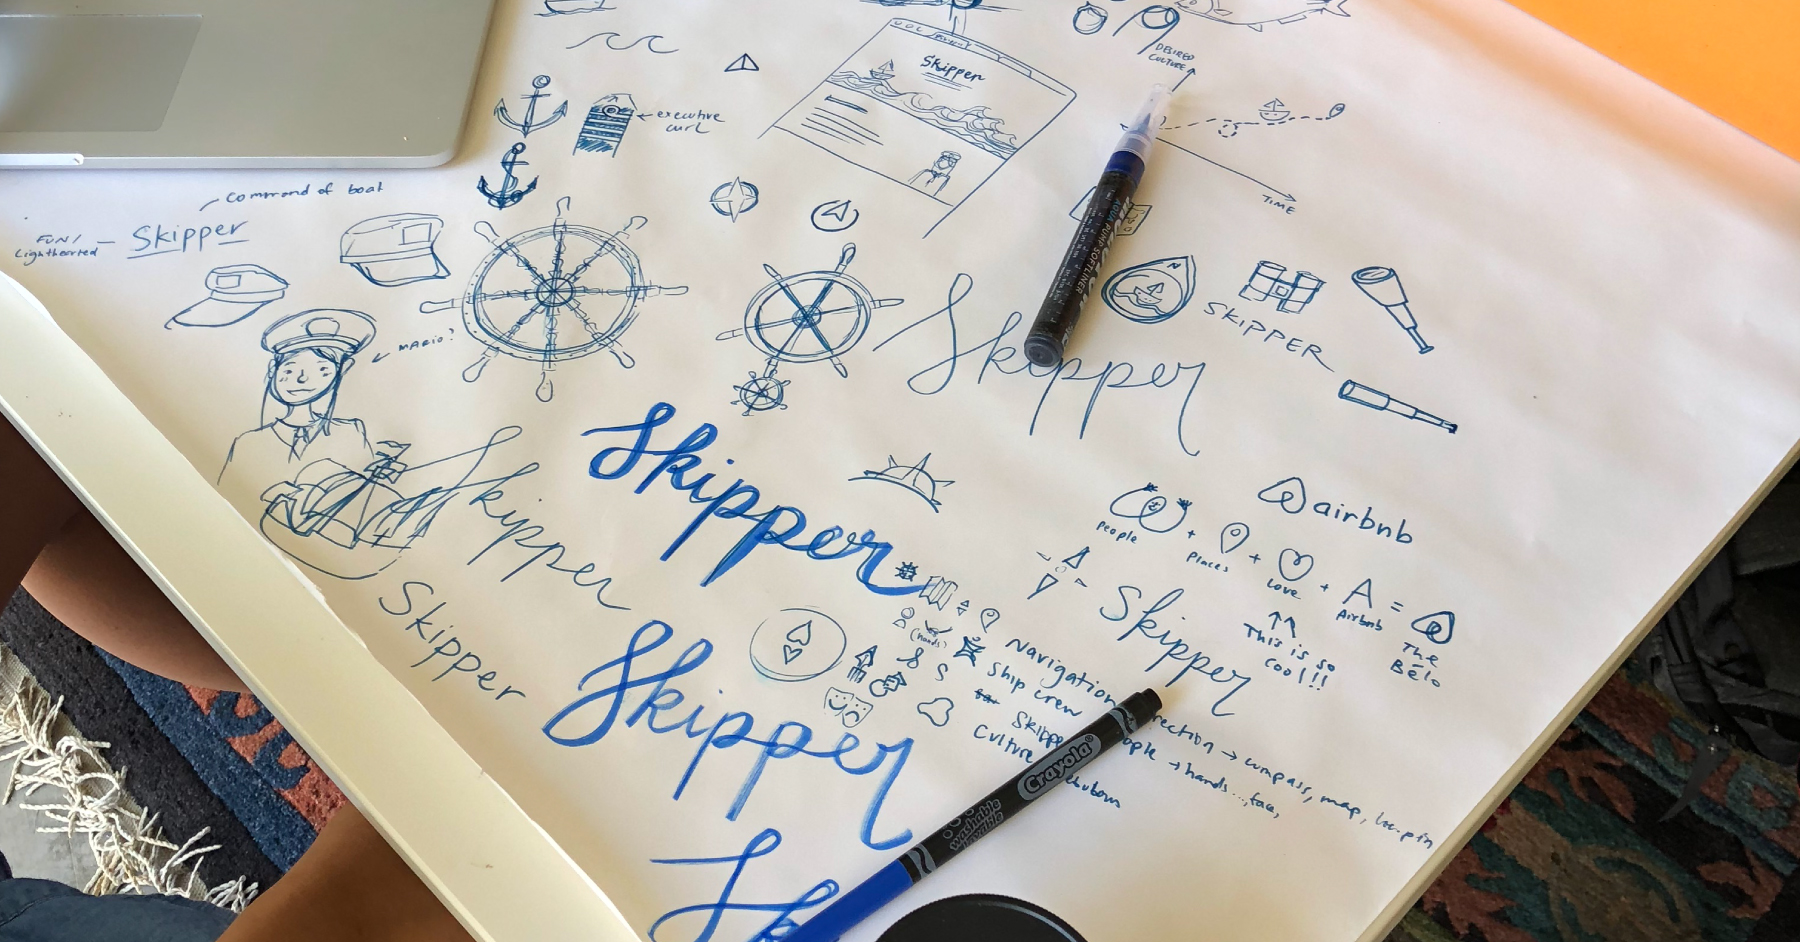 Skipper
DESIRED
CULTURE
TIME
executive
curl
Command of boat
FUN/
Lighthearted
Skipper
MARIO?
N
SKIPPER
Skipper
AQUA PUMP SOFTLINER
Skipper
Skipper
Skipper
Skipper
airbnb
people + places + love + A Airbnb = The Bélo
This is so
cool!!
Skipper
(hands)
Navigation
rection → compass, map, loc. pin
Ship crew
ople → hands..., face,
Skippe
Culture
Skipper
Crayola
washable
Sk